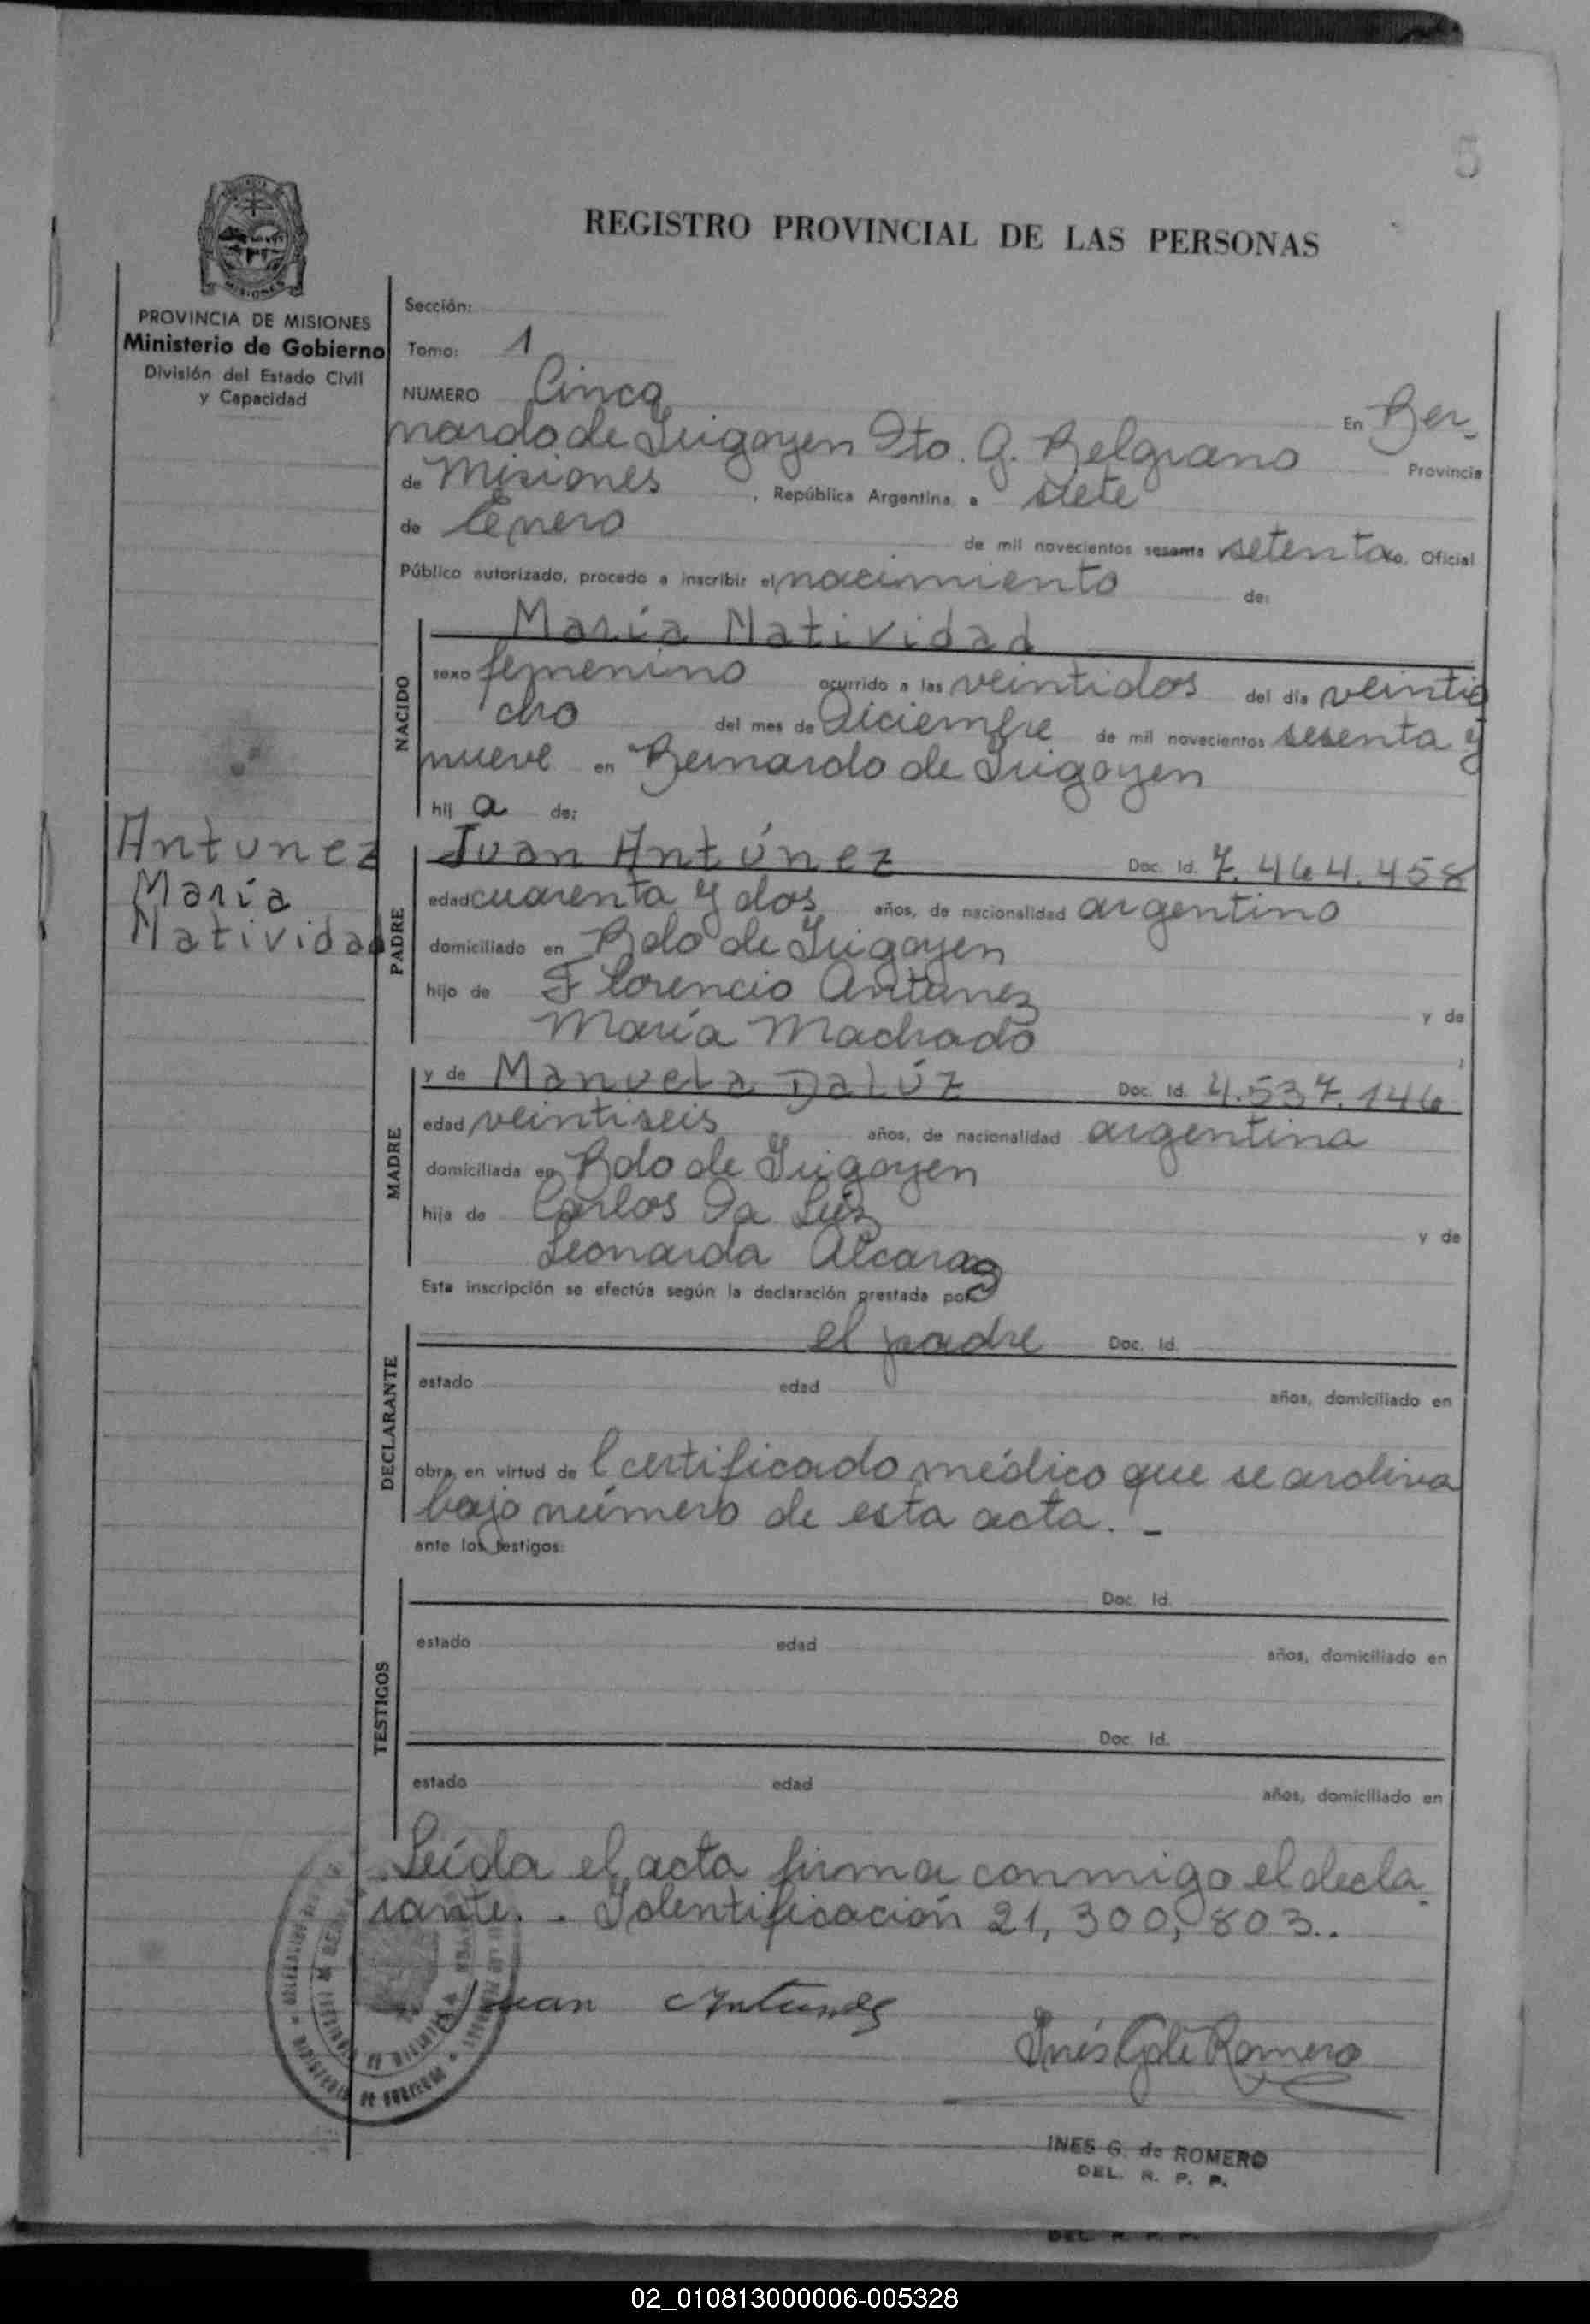 5
REGISTRO PROVINCIAL DE LAS PERSONAS
PROVINCIA DE MISIONES
Ministerio de Gobierno
División del Estado Civil
y Capacidad
Sección:
Tomo: 1
NUMERO Cinco
En Ber-
nardo de Irigoyen Dto. G. Belgrano Provincia
de Misiones, República Argentina, a siete
de Enero de mil novecientos sesenta setenta yo, Oficial
Público autorizado, procedo a inscribir el nacimiento de:
NACIDO
María Natividad
sexo femenino ocurrido a las veintidos del día veintio
cho del mes de Diciembre de mil novecientos sesenta y
nueve en Bernardo de Irigoyen
hij a de:
Antunez
María
Natividad
PADRE
Juan Antúnez Doc. Id. 7.464.458
edad cuarenta y dos años, de nacionalidad argentino
domiciliado en Bdo de Irigoyen
hijo de Florencio Antunez y de
María Machado
MADRE
y de Manuela Dalúz Doc. Id. 4.537.146
edad veintiseis años, de nacionalidad argentina
domiciliada en Bdo de Irigoyen
hija de Carlos Da Luz y de
Leonarda Alcaraz
Esta inscripción se efectúa según la declaración prestada por
DECLARANTE
el padre Doc. Id.
estado edad años, domiciliado en
obra en virtud de l certificado médico que se archiva
bajo número de esta acta. -
ante los testigos:
TESTIGOS
Doc. Id.
estado edad años, domiciliado en
Doc. Id.
estado edad años, domiciliado en
Leída el acta firma conmigo el decla-
rante. - Identificación 21,300,803..
Juan Antunez
Inés G de Romero
INES G. de ROMERO
DEL. R. P. P.
DEL. R. P. P.
02_010813000006-005328